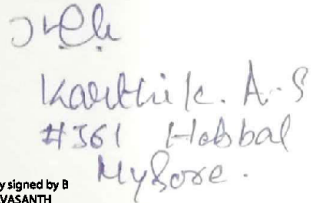 Karthik. A-S
#361 Hebbal
Mysore.
y signed by B
VASANTH